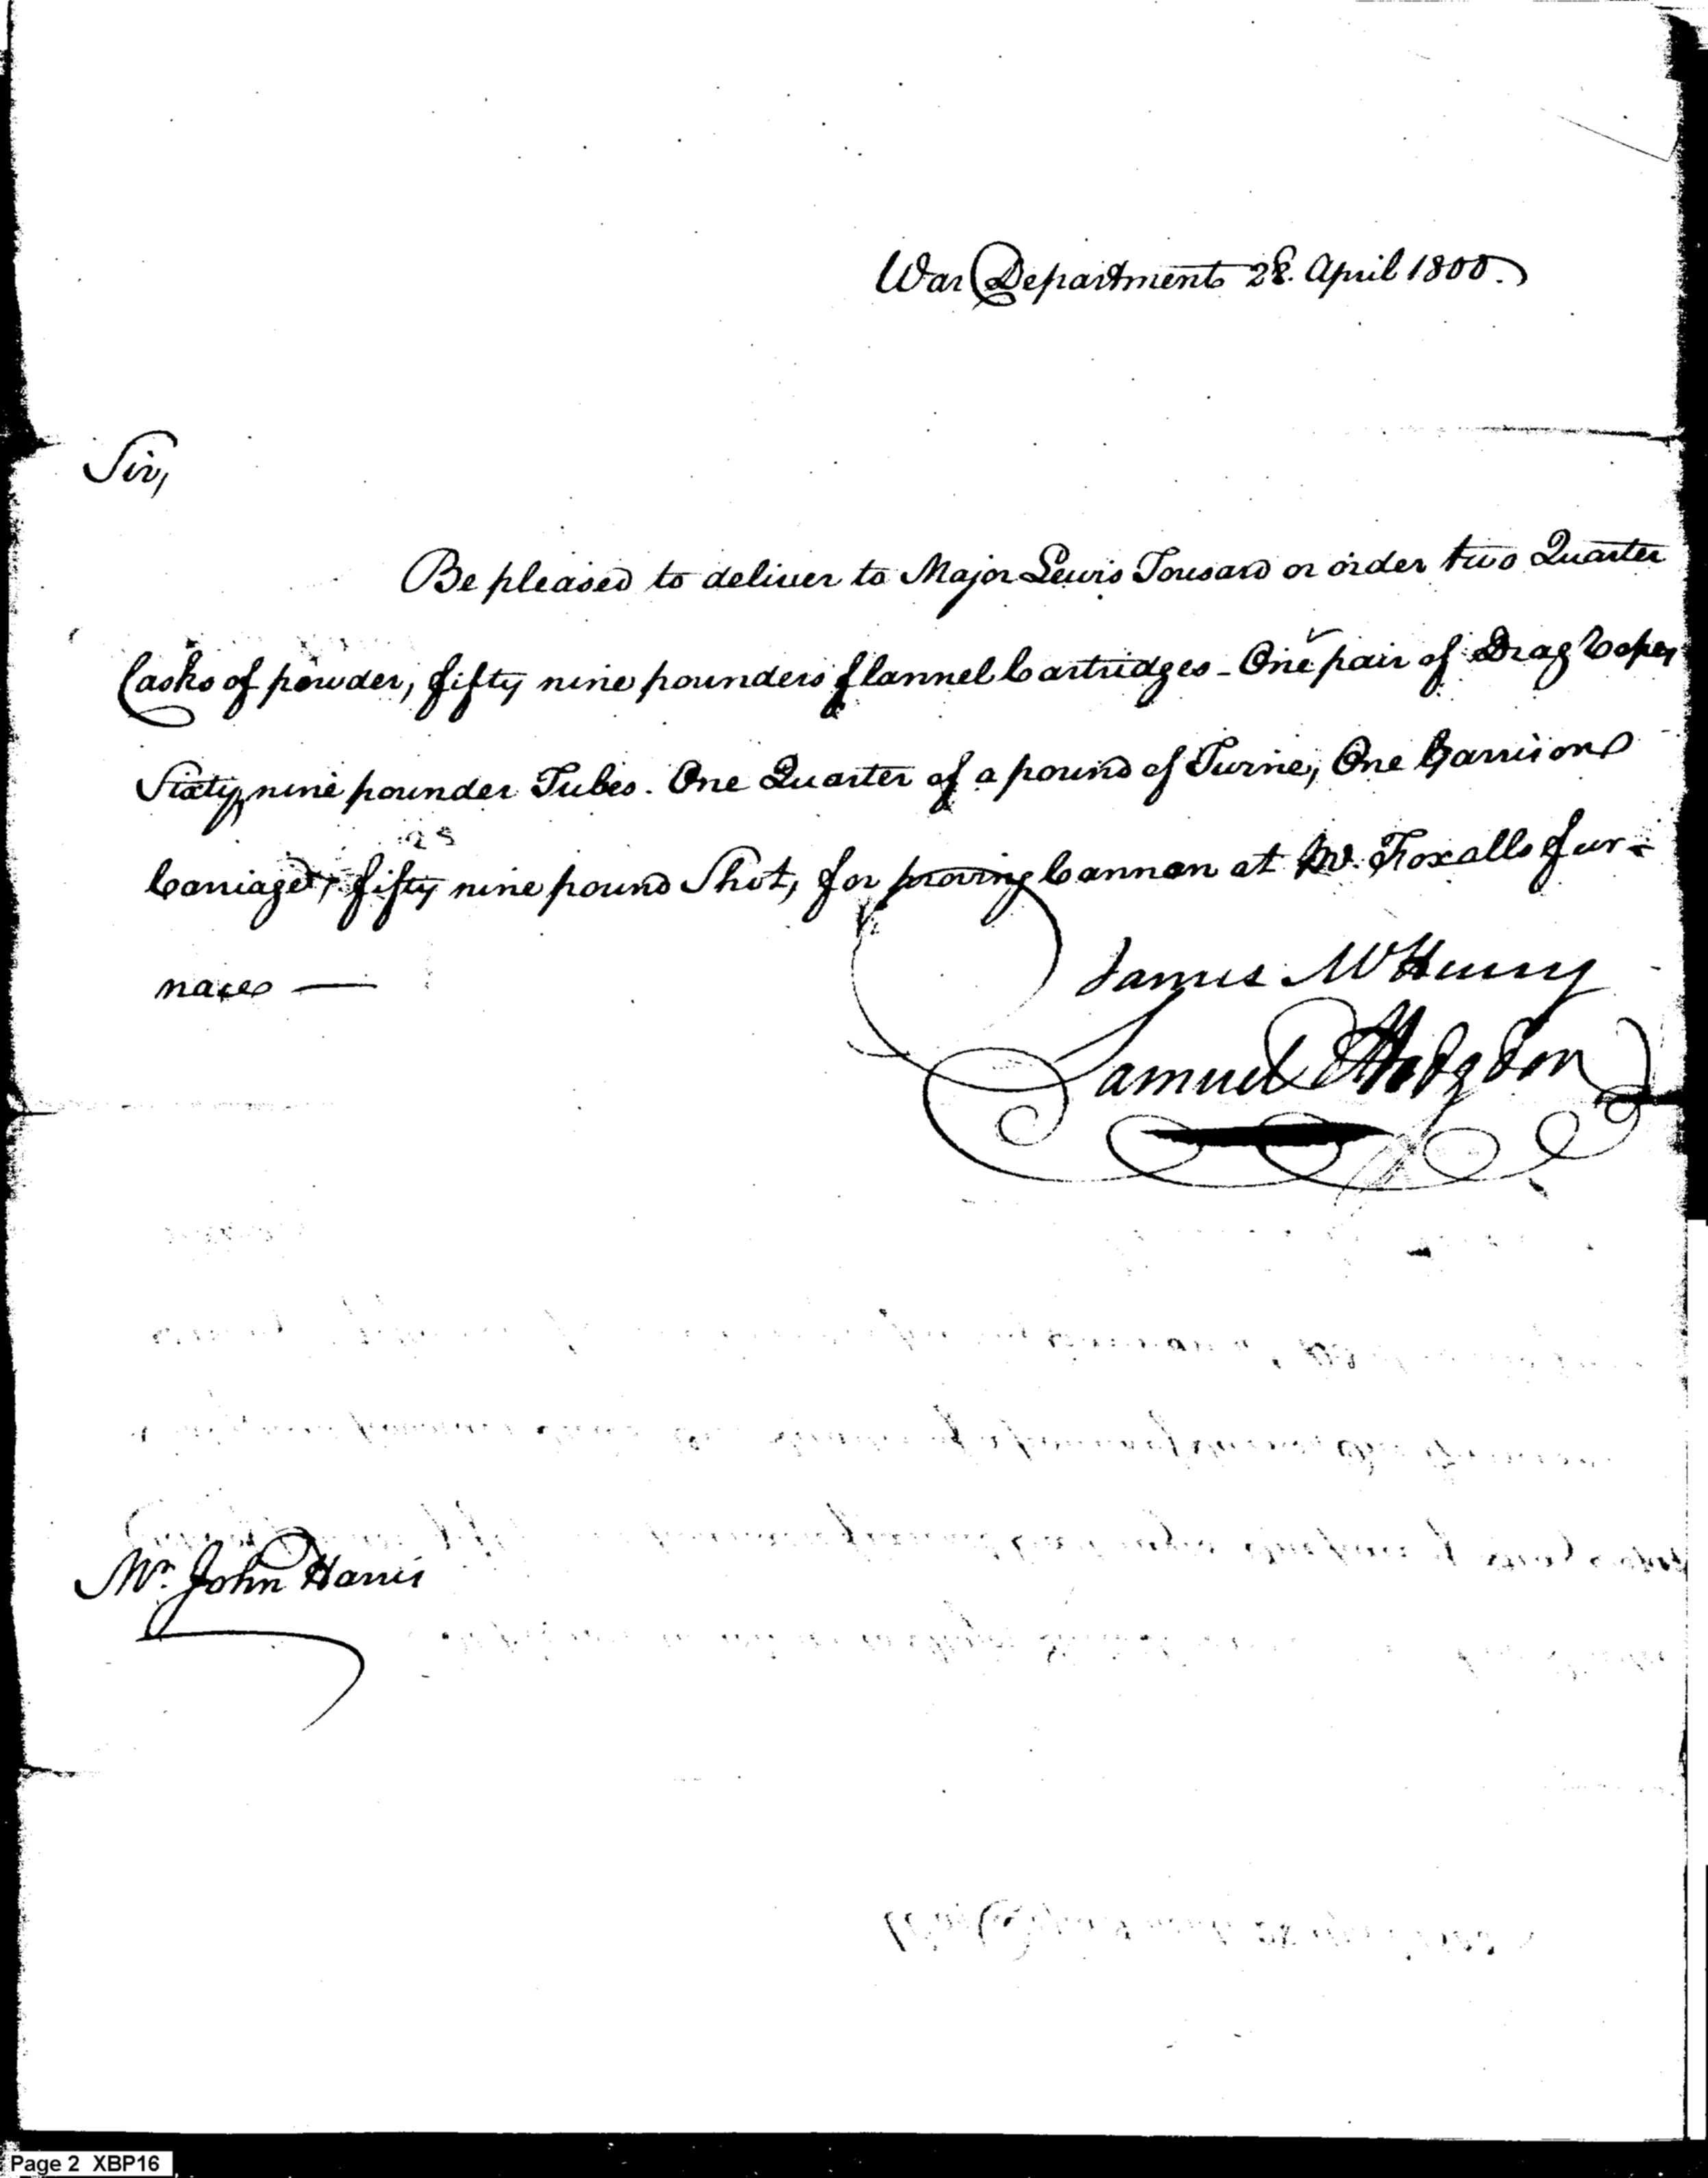 War Department 28. April 1800.
Sir,
Be pleased to deliver to Major Lewis Tousard or order two Quarter
Casks of powder, fifty nine pounders flannel Cartridges - One pair of Drag Ropes
Sixty, nine pounder Tubes. One Quarter of a pound of Twine, One Garrison
28
Carriage, fifty nine pound Shot, for proving Cannon at Mr. Foxalls fur-
naces —
James McHenry
Samuel Hodgdon
Mr. John Harris
Page 2 XBP16